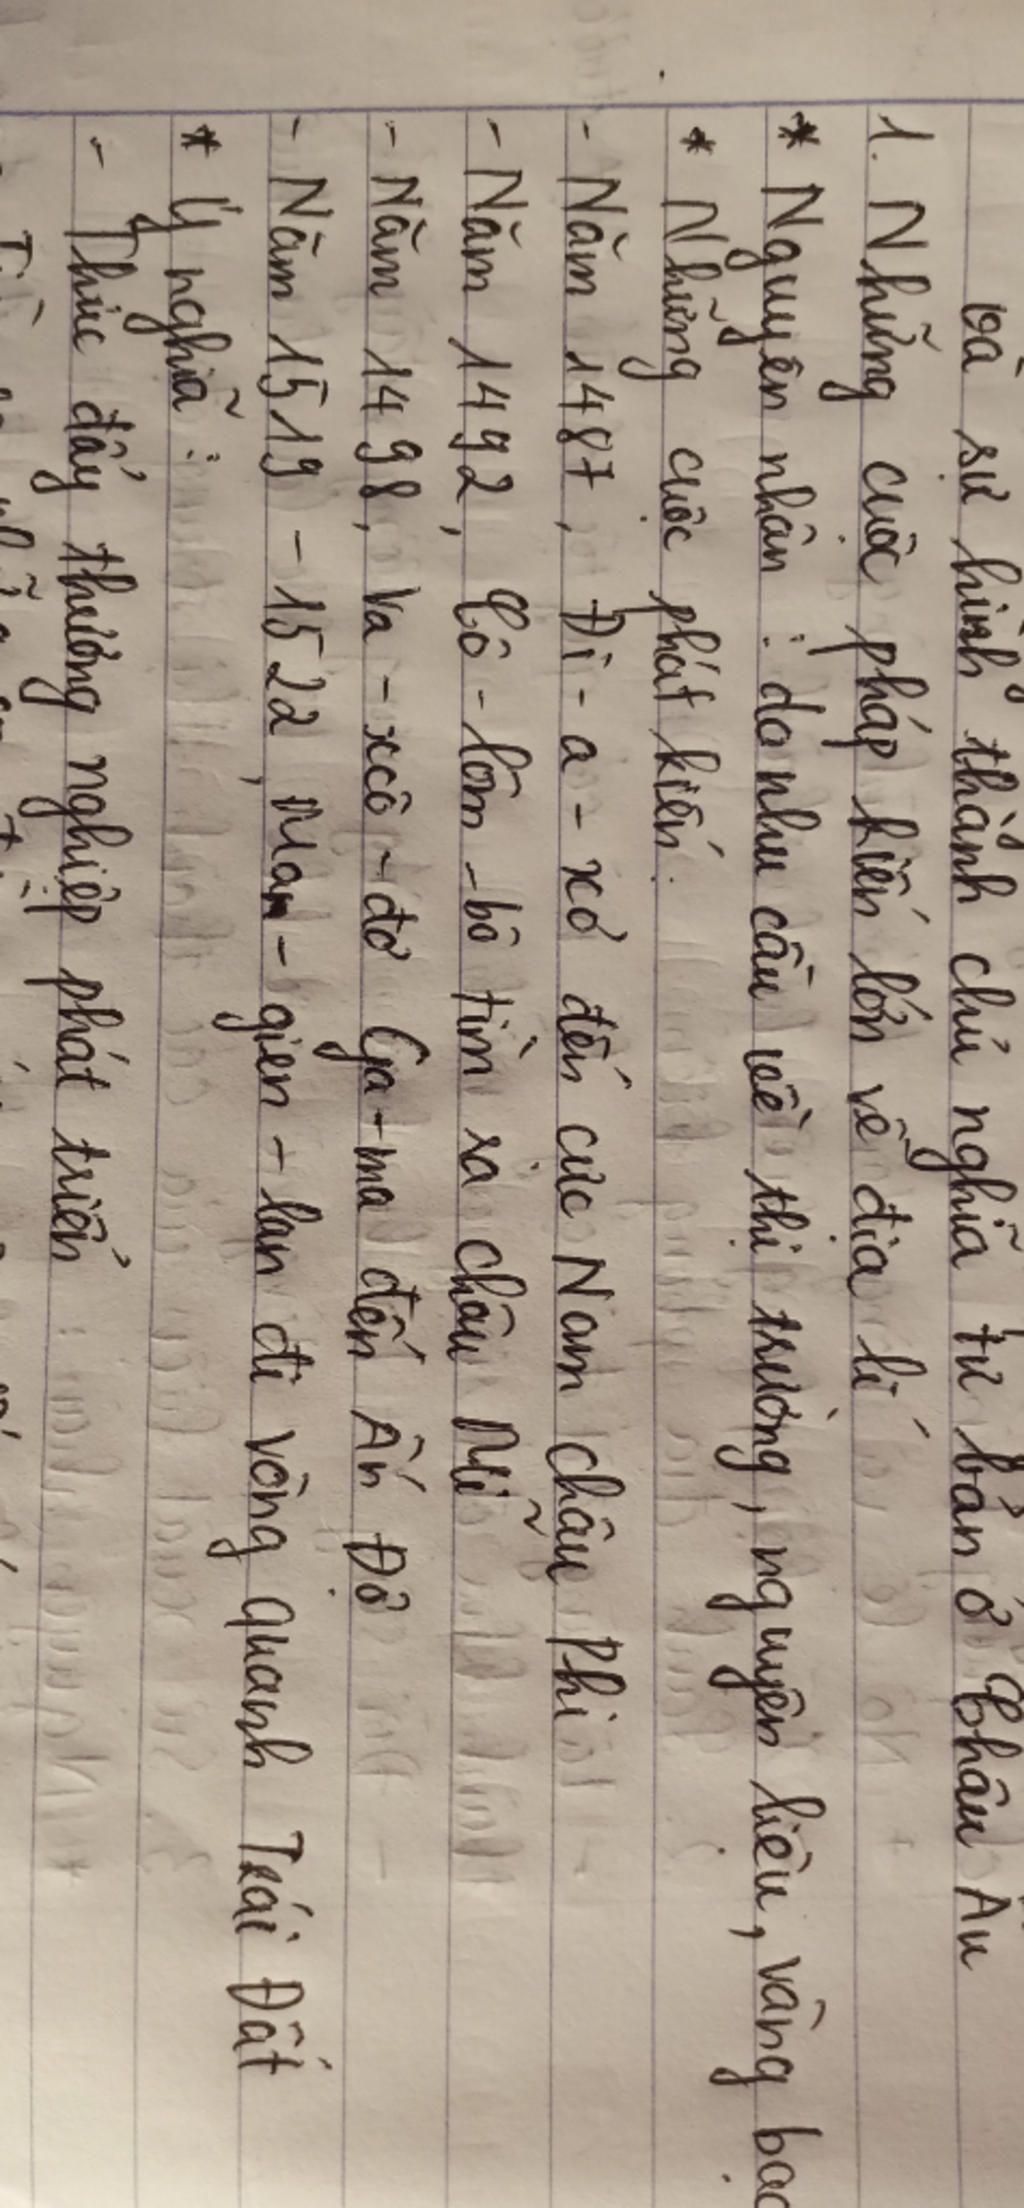 và sự hình thành chủ nghĩa tư bản ở Châu Âu
1. Những cuộc pháp kiến lớn về địa lí
* Nguyên nhân : do nhu cầu về thị trường, nguyên liệu, vàng bạc
* Những cuộc phát kiến.
- Năm 1487, Đi-a-xơ đến cực Nam châu Phi
- Năm 1492, Cô-lôm-bô tìm ra châu Mĩ
- Năm 1498, Va-xcô-đơ Ga-ma đến Ấn Độ
- Năm 1519 - 1522, Man-gien-lan đi vòng quanh Trái Đất
* Ý nghĩa :
- Thúc đẩy thương nghiệp phát triển